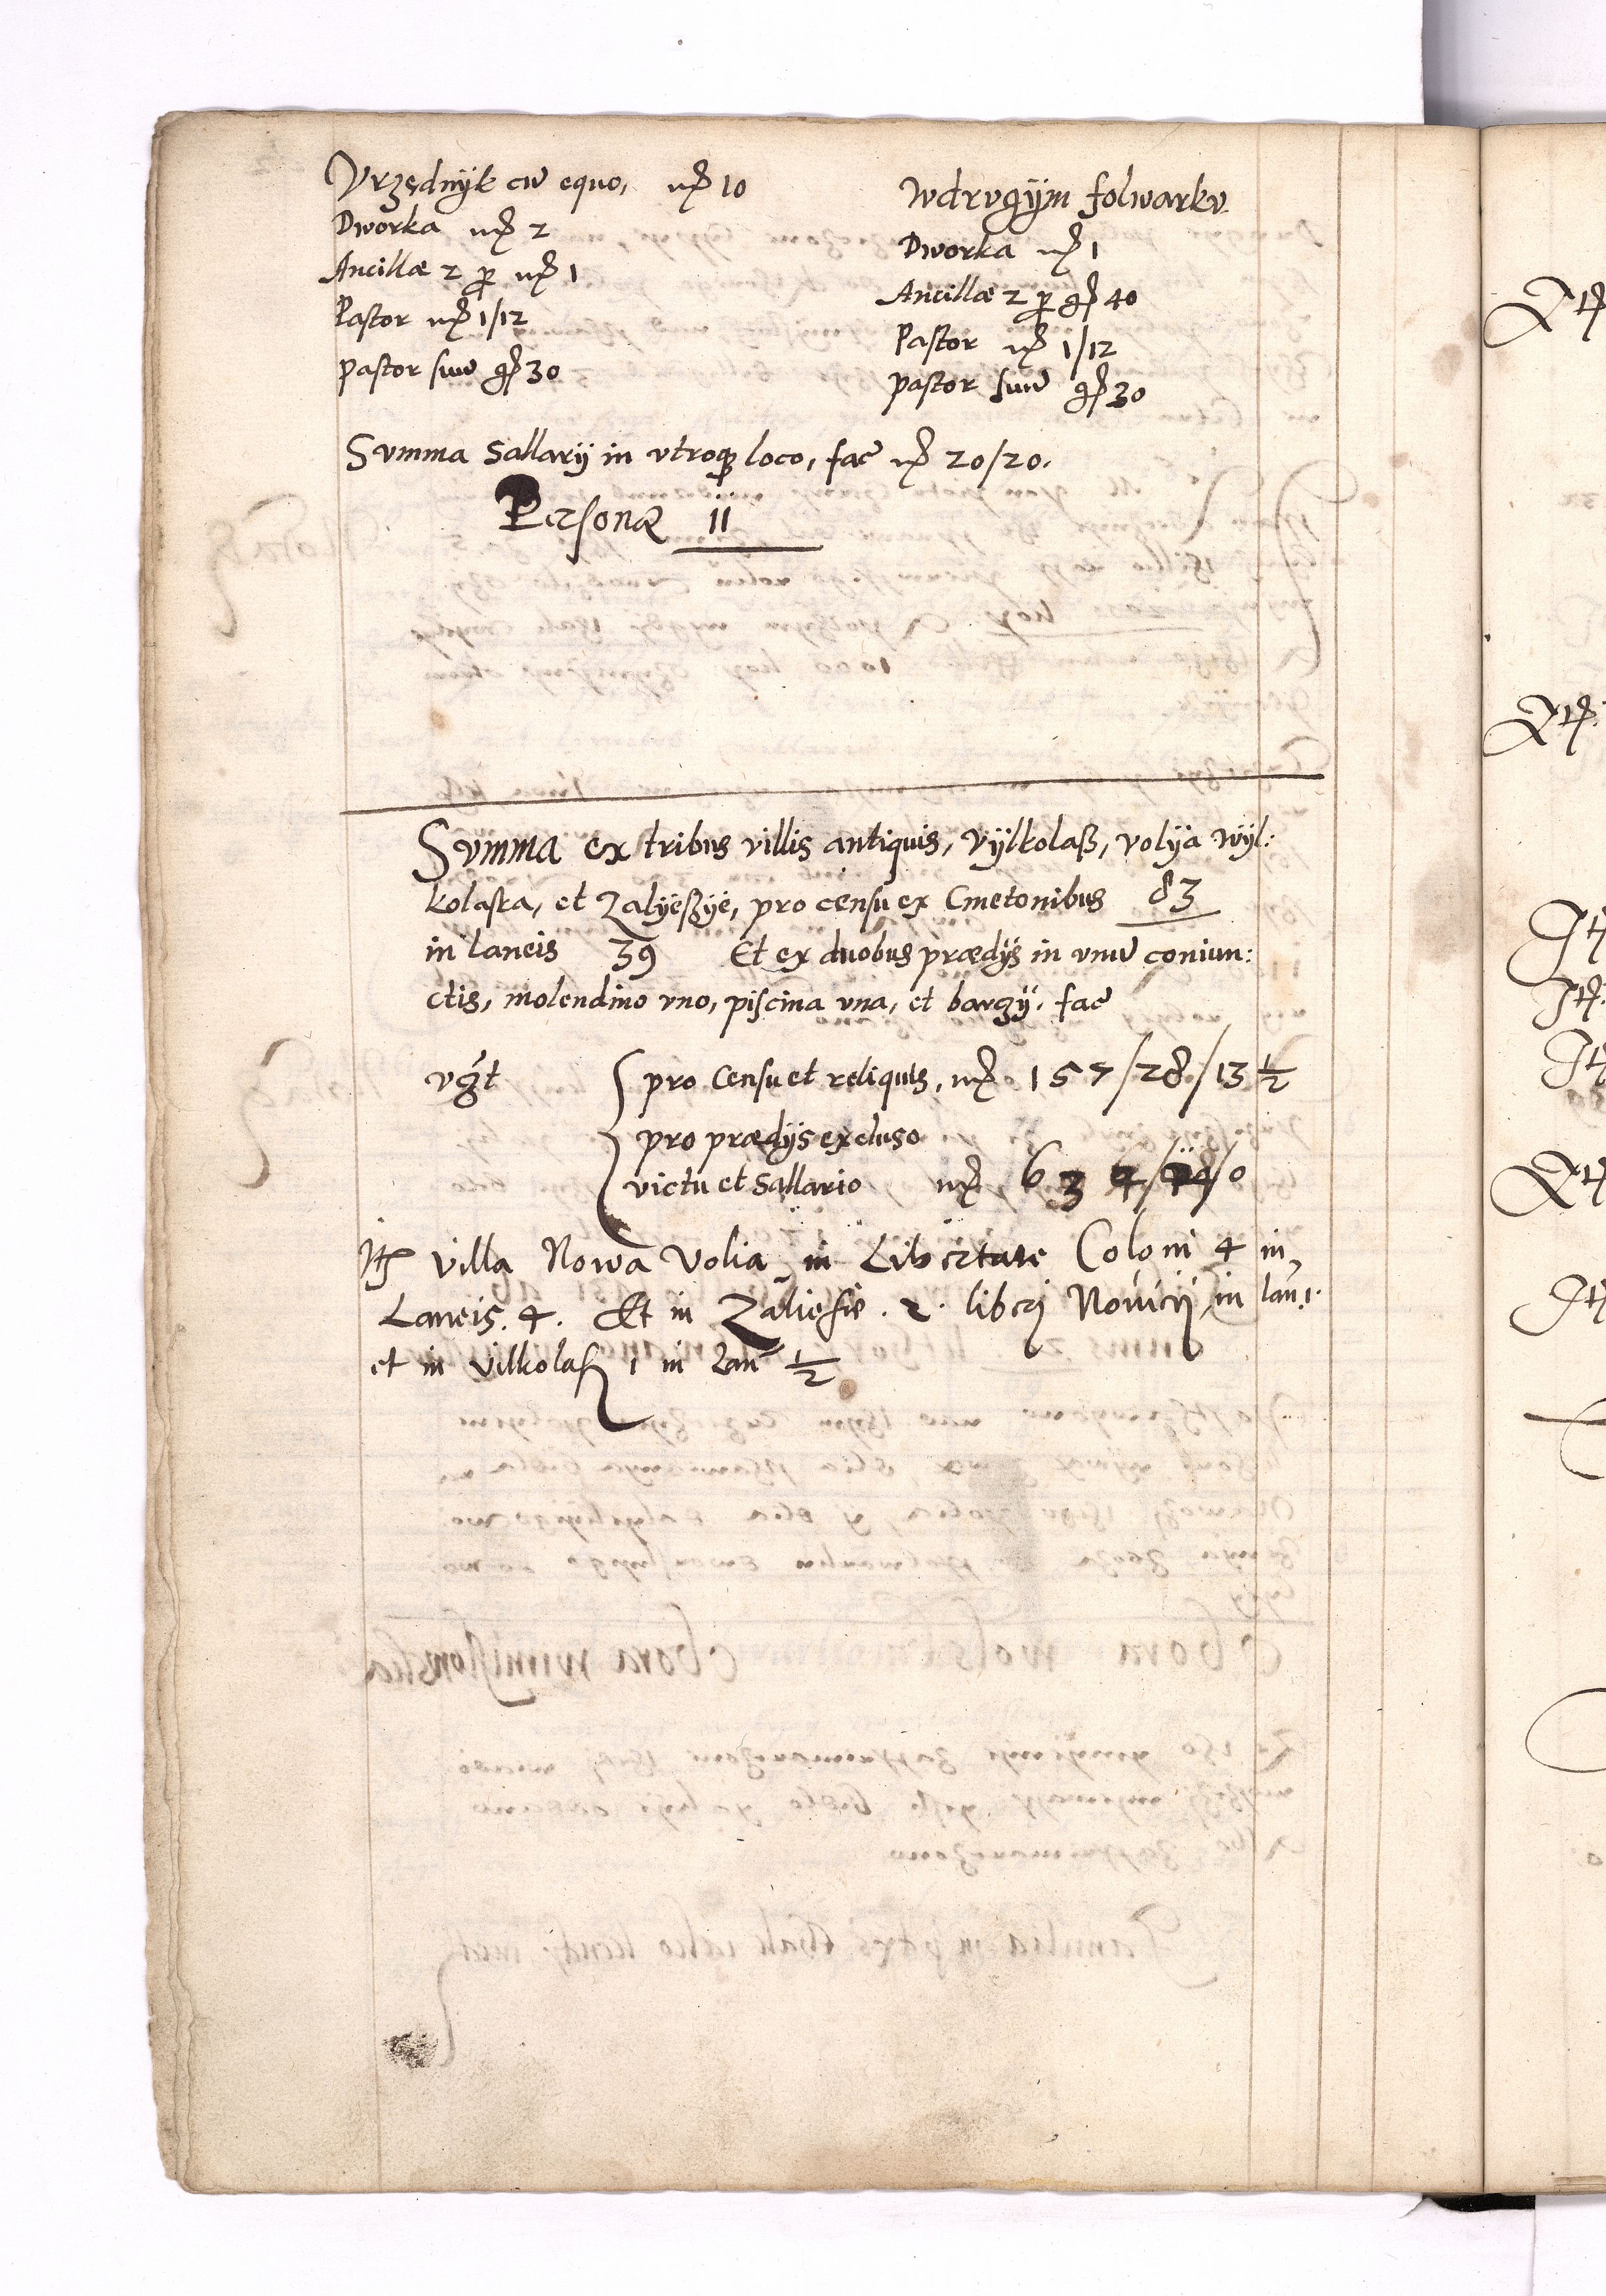 Vrzędnÿk cū equo, mr̃ 10
Dworka mr̃ 2
Ancillæ 2 p mr̃ 1
Pastor mr̃ 1/12
pastor suū gr̃ 30
Wdrvgÿm folwarkv
Dworka mr̃ 1
Ancillæ 2 p gr̃ 40
Pastor mr̃ 1/12
pastor suū gr̃ 30
Svmma Sallarÿ in vtroq; loco, fac̃ mr̃ 20/20.
Personæ 11
Svmma ex tribus villis antiquis, Vÿlkolasz, volÿa Wÿl:
kolaska, et Zalÿeszÿe, pro censu ex Cmetonibus 83
in laneis 39 Et ex duobus prædÿs in vnū coniun:
ctis, molendino vno, piscina vna, et barzÿ. fac̃
vgr̃t
pro Censu et reliquis, mr̃ 157/28/13 ½
pro prædÿs excluso
victu et Sallario mr̃ 634/ /0
Itꝫ villa Nowa Volia in Libertate Coloni 4 in
Laneis. 4. Et in Zaliesie. 2. liberj Nouicÿ, in lañ 1.
et in vilkolasz 1 in Lañ ½